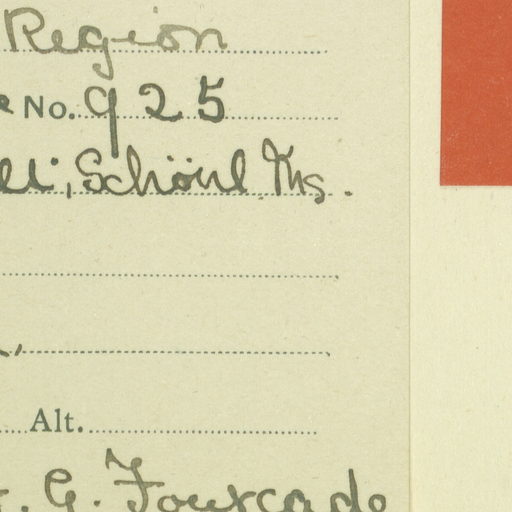 Region
No. 925
Schönl. Ms.
Alt.
G. Fourcade